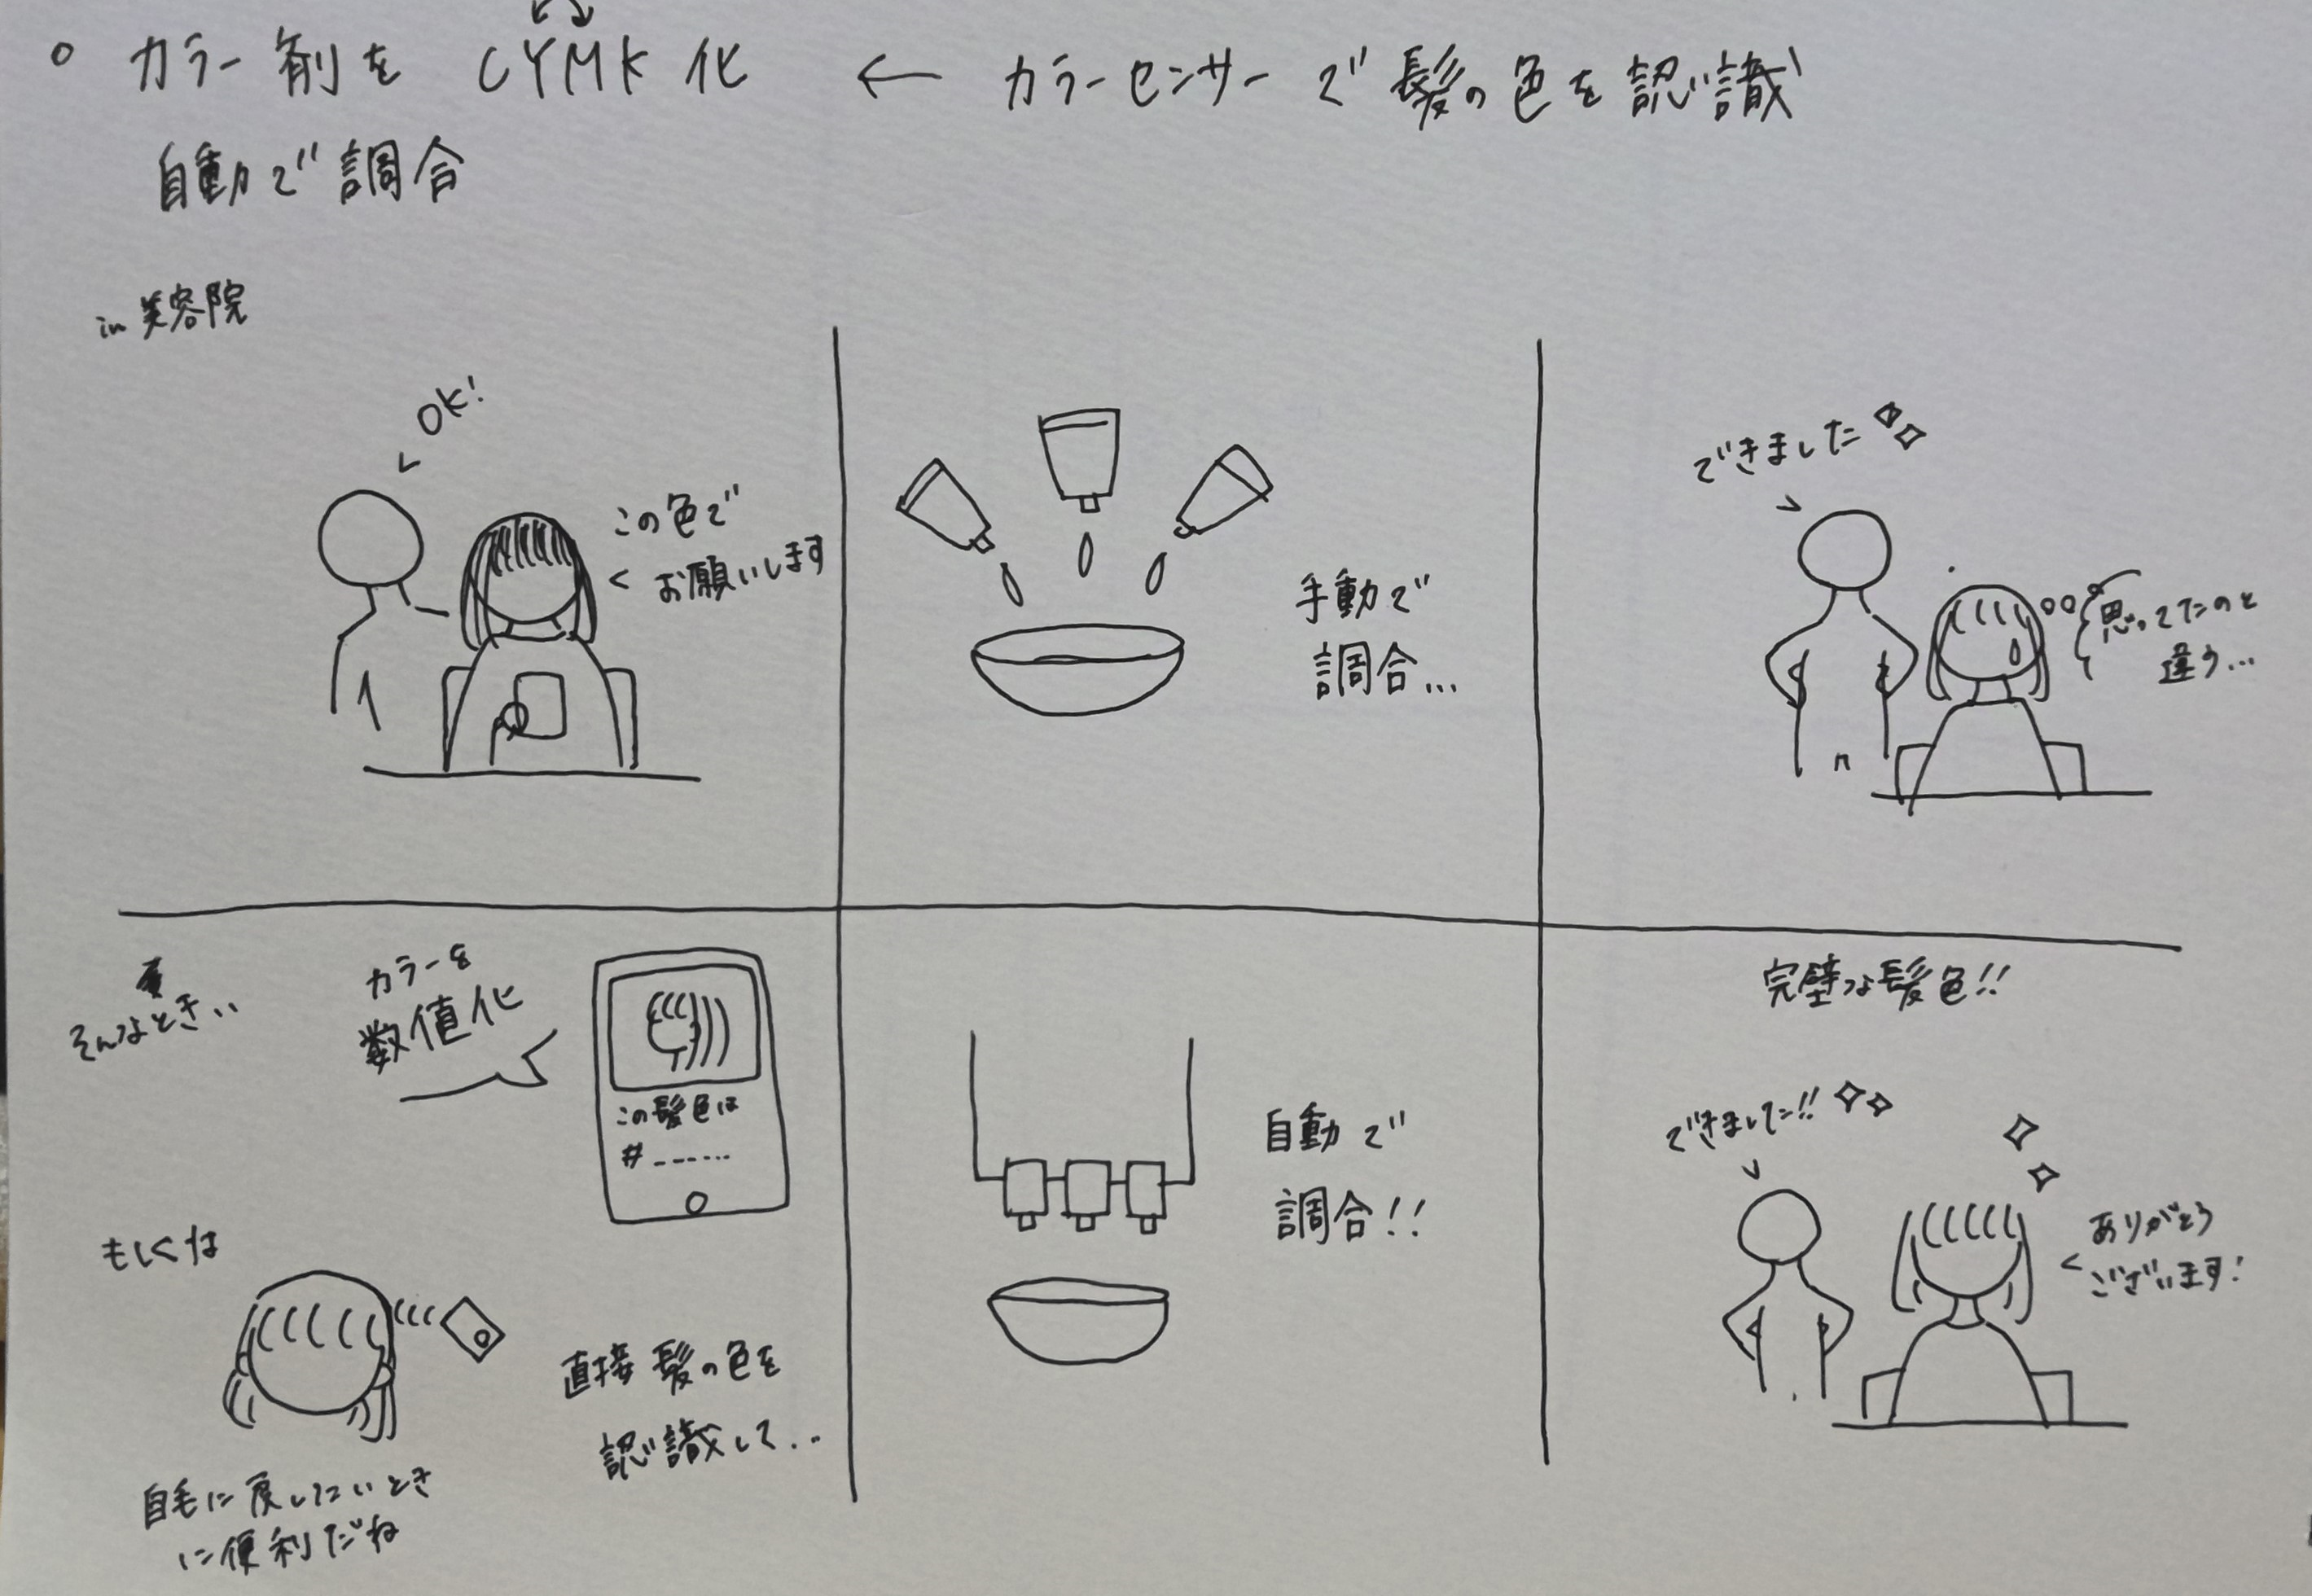 ○ カラー剤を CYMK化 ← カラーセンサーで髪の色を認識
自動で調合
in 美容院
OK!
この色で
お願いします
手動で
調合...
できました
思ってたのと
違う...
そんなとき..
カラーを
数値化
この髪色は
#------
もしくは
直接髪の色を
認識して...
自毛に戻したいとき
に便利だね
自動で
調合!!
完璧な髪色!!
できました!!
ありがとう
ございます!